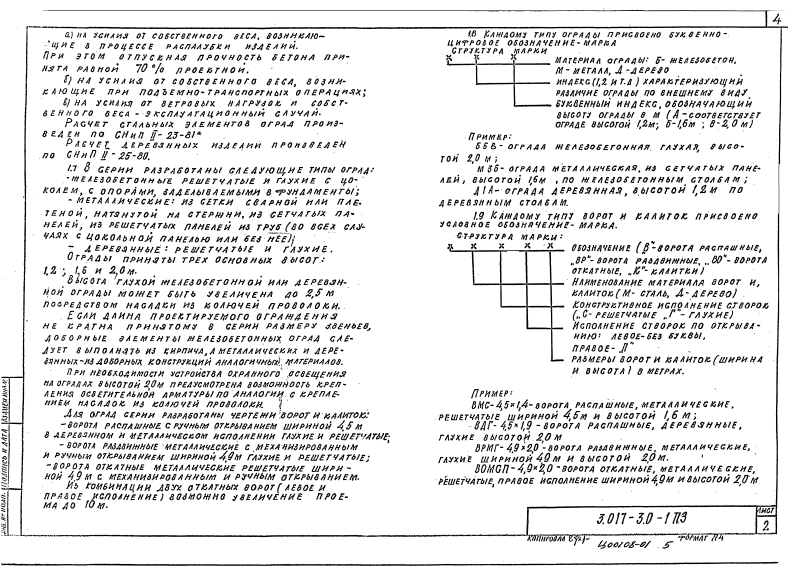 4
а) на усилия от собственного веса, возникаю-
щие в процессе распалубки изделий.
При этом отпускная прочность бетона при-
нята равной 70% проектной.
б) на усилия от собственного веса, возни-
кающие при подъемно-транспортных операциях;
в) на усилия от ветровых нагрузок и собст-
венного веса - эксплуатационный случай.
Расчет стальных элементов оград произ-
веден по СНиП II-23-81*
Расчет деревянных изделий произведен
по СНиП II-25-80.
1.7 В серии разработаны следующие типы оград:
- железобетонные решетчатые и глухие с цо-
колем, с опорами, заделываемыми в фундаменты;
- металлические: из сетки сварной или пле-
теной, натянутой на стержни, из сетчатых па-
нелей, из решетчатых панелей из труб (во всех слу-
чаях с цокольной панелью или без нее);
- деревянные: решетчатые и глухие.
Ограды приняты трех основных высот:
1,2; 1,6 и 2,0м.
Высота глухой железобетонной или деревян-
ной ограды может быть увеличена до 2,5 м
посредством насадки из колючей проволоки.
Если длина проектируемого ограждения
не кратна принятому в серии размеру звеньев,
доборные элементы железобетонных оград сле-
дует выполнять из кирпича, а металлических и дере-
вянных - из доборных конструкций аналогичных материалов.
При необходимости устройства охранного освещения
на оградах высотой 2,0м предусмотрена возможность креп-
ления осветительной арматуры по аналогии с крепле-
нием насадок из колючей проволоки.
Для оград серии разработаны чертежи ворот и калиток:
- ворота распашные с ручным открыванием шириной 4,5 м
в деревянном и металлическом исполнении глухие и решетчатые;
- ворота раздвижные металлические с механизированным
и ручным открыванием шириной 4,9м глухие и решетчатые;
- ворота откатные металлические решетчатые шири-
ной 4,9 м с механизированным и ручным открыванием.
Из комбинации двух откатных ворот (левое и
правое исполнение) возможно увеличение прое-
ма до 10м.
1.8 Каждому типу ограды присвоено буквенно-
цифровое обозначение-марка
Структура марки
х х х
Материал ограды: Б - железобетон,
М - металл, Д - дерево
Индекс (1,2 и т.д) характеризующий
различие ограды по внешнему виду
Буквенный индекс, обозначающий
высоту ограды в м (А - соответствует
ограде высотой 1,2м; Б-1,6м; В-2,0м)
Пример:
Б6В - ограда железобетонная глухая, высо-
той 2,0м;
М5Б - ограда металлическая, из сетчатых пане-
лей, высотой 1,6м, по железобетонным столбам;
Д1А - ограда деревянная, высотой 1,2м по
деревянным столбам.
1.9 Каждому типу ворот и калиток присвоено
условное обозначение-марка.
Структура марки:
х х х х х
Обозначение („В"-ворота распашные,
„ВР"-ворота раздвижные, „ВО"-ворота
откатные, „К"-калитки)
Наименование материала ворот и,
калиток (М - сталь, Д - дерево)
Конструктивное исполнение створок
(„С-решетчатые „Г"-глухие)
Исполнение створок по открыва-
нию: левое-без буквы,
правое- „П"
Размеры ворот и калиток (ширина
и высота) в метрах.
Пример:
ВМС-4,5×1,4-ворота распашные, металлические,
решетчатые шириной 4,5м и высотой 1,6м;
ВДГ-4,5×1,9-ворота распашные, деревянные,
глухие высотой 2,0м
ВРМГ-4,9×2,0-ворота раздвижные, металлические,
глухие шириной 4,9м и высотой 2,0м.
ВОМСП-4,9×2,0-ворота откатные, металлические,
решетчатые, правое исполнение шириной 4,9м и высотой 2,0м
Инв. № подл. Подпись и дата Взам.инв.№
3.017-3.0-1 ПЗ
Лист
2
Копировал
Ц00108-01 5
Формат А4